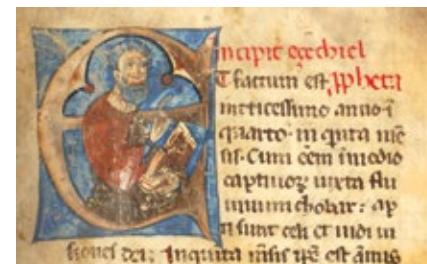 Incipit ezechiel
Et factum est ppheta
in tricessimo anno · i
quarto · in quita mē
sis · Cum eēm in medio
captiuoꝝ iuxta flu
uium chobar : ap
ti sunt celi et uidi ui
siones dei : In quīta mēsis ipē est annus